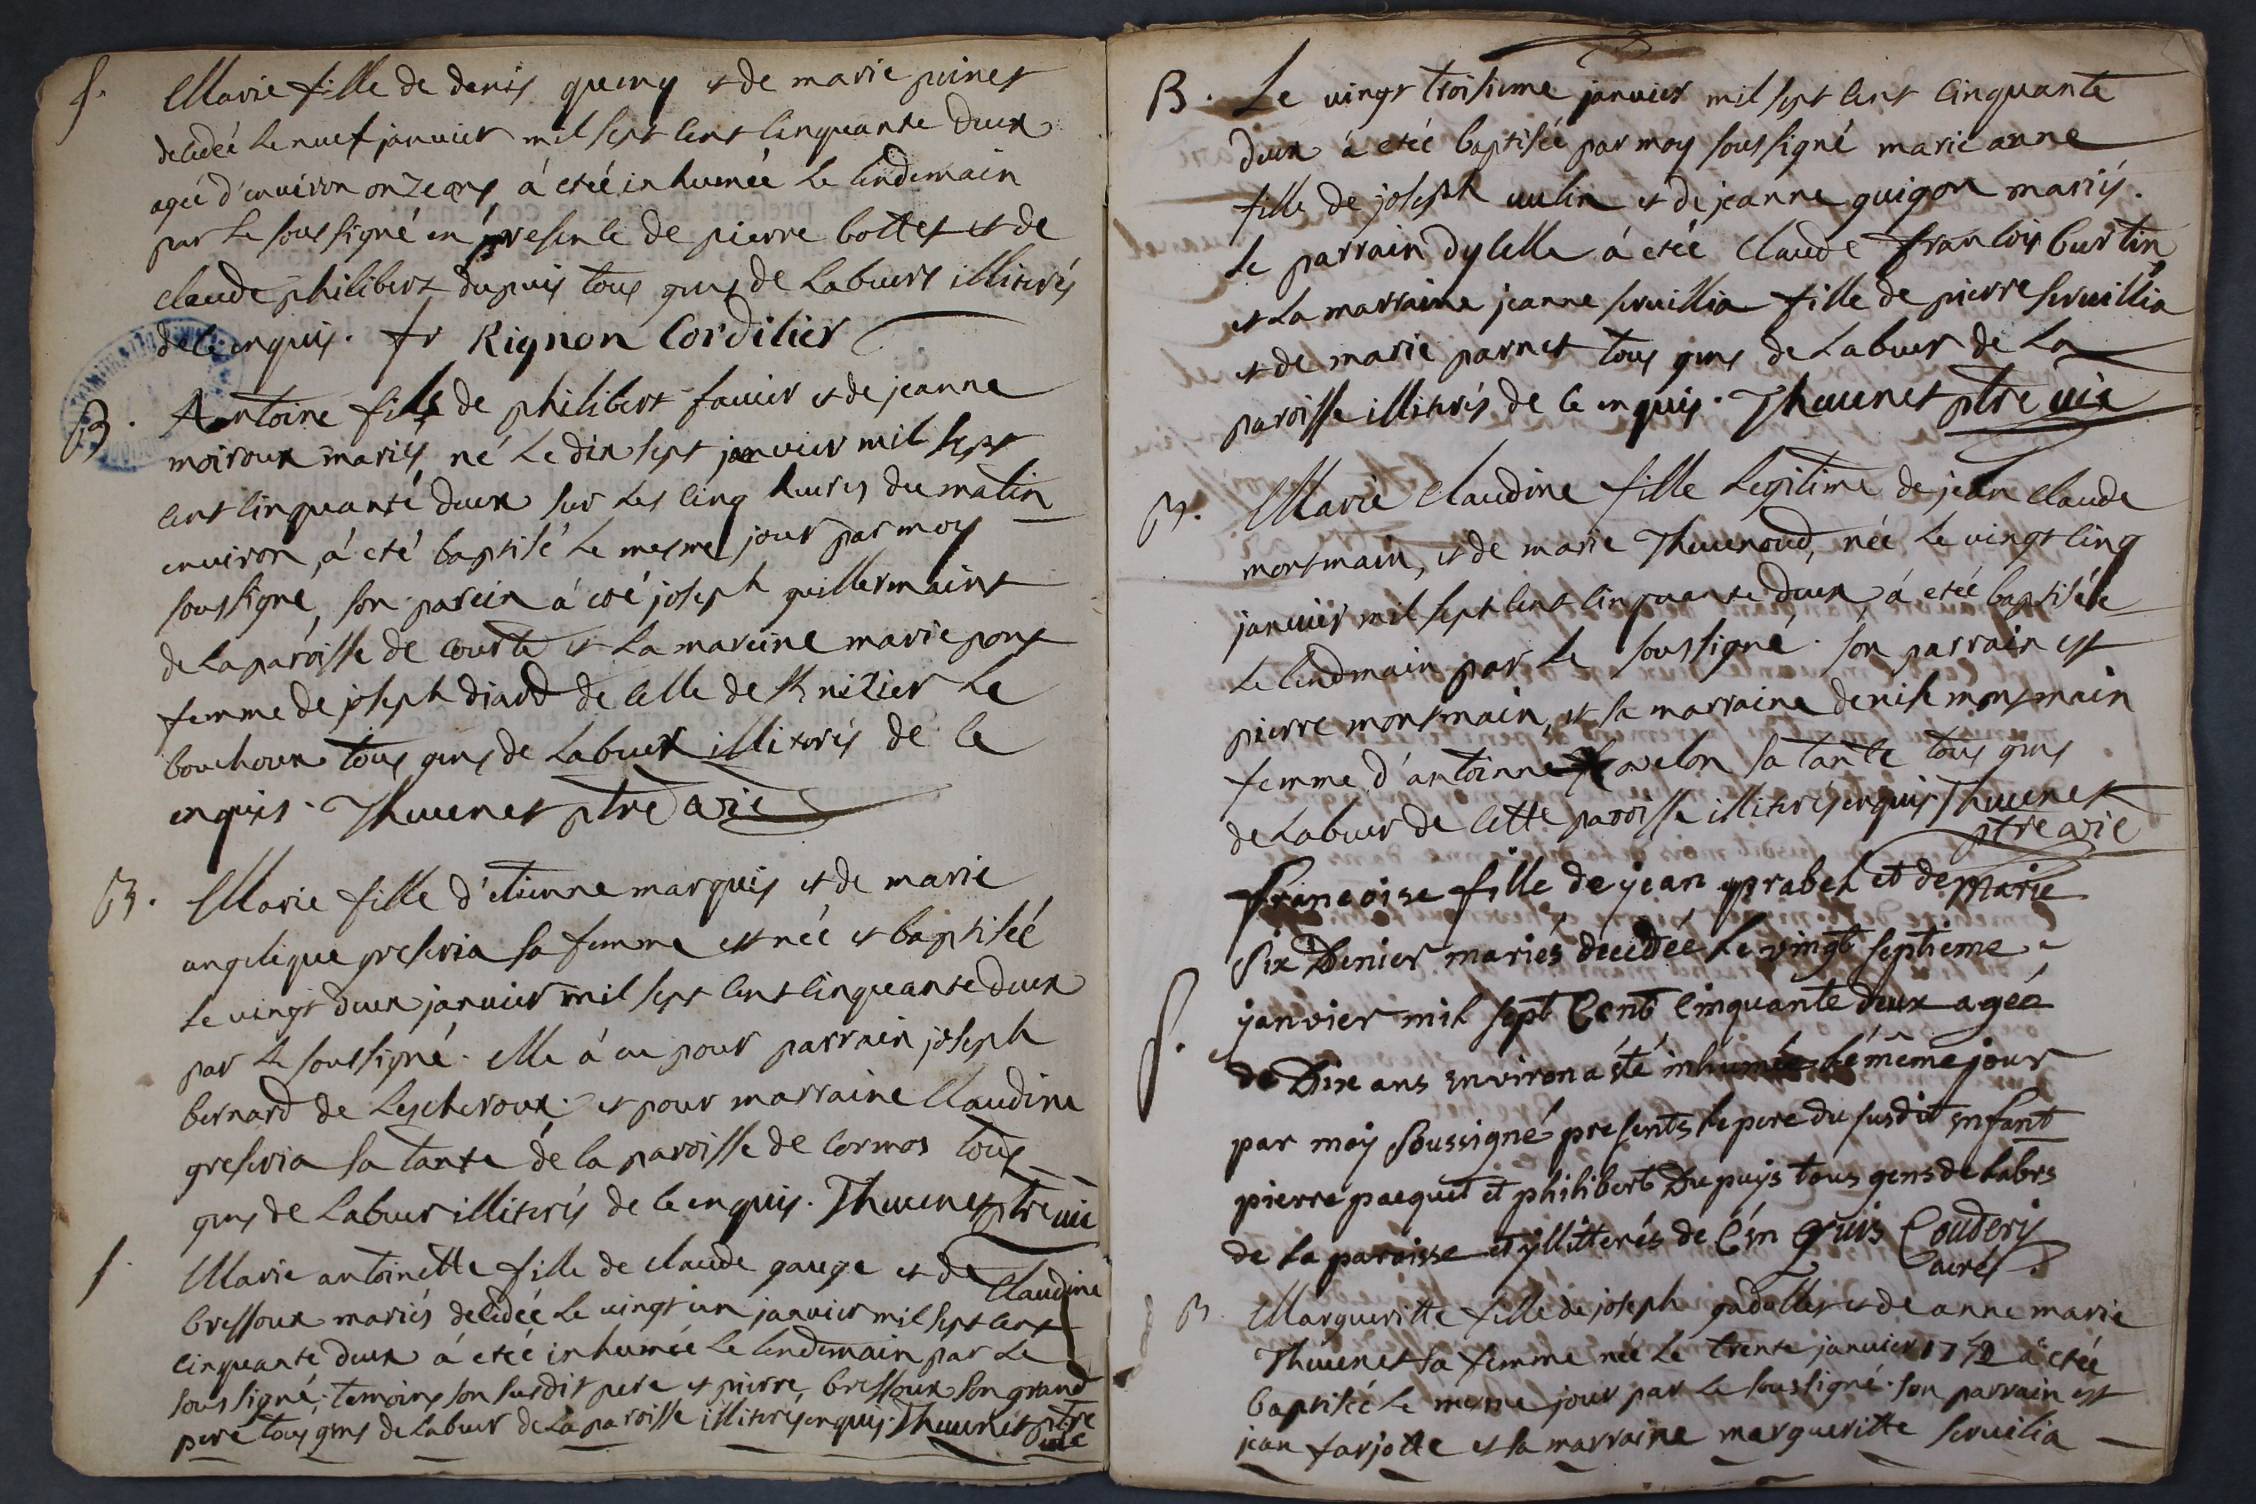 S.
Marie fille de denis quiny et de marie poinet
decedeé le neuf janvier mil sept cent cinquante deux
ageé d'environ onze ans, á eteé inhumeé le lendemain
par le soussigné en presence de pierre bottet et de
claude philibert dupuis tous gens de labeurs illiterés
de ce enquis. fr Rignon Cordelier
B. Antoine fils de philibert favier et de jeanne
moiroux mariés né le dix sept janvier mil sept
cent cinquante deux sur les cinq heures du matin
environ, á eté baptisé le mesme jour par moy
soussigné, son parein á eté joseph guillermaint
de la paroisse de courte et la mareine marie pont
femme de joseph diard de celle de St nizier le
bouchoux tous gens de labeur illiterés de ce
enquis. Thuvenet ptre vic
B. Marie fille d'etienne marquis et de marie
angelique greseria sa femme est neé et baptiseé
le vingt deux janvier mil sept cent cinquante deux
par le soussigné. elle á eu pour parrain joseph
bernard de Lescheroux. et pour marraine Claudine
greseria sa tante de la paroisse de Cormos tous
gens de labeur illiterés de ce enquis. Thuvenet ptre vic
S. Marie antoinette fille de claude gauge et de Claudine
bressoux mariés decedeé le vingt un janvier mil sept cent
cinquante deux á eteé inhumeé le lendemain par le
soussigné. temoins son susdit pere et pierre bressoux son grand
pere tous gens de labeur de la paroisse illiterés enquis. Thuvenet ptre
vic
3
B. Le vingt troisieme janvier mil sept cent cinquante
deux á eteé baptiseé par moy soussigné marie anne
fille de joseph vulin et de jeanne guigon mariés.
le parrain dycelle á eteé Claude francois burtin
et la marraine jeanne servillia fille de pierre servillia
et de marie parnet tous gens de labeur de la
paroisse illiterés de ce enquis. Thuvenet ptre vic
B. Marie Claudine fille legitime de jean claude
montmain, et de marie Thuvenoud, neé le vingt cinq
janvier mil sept cent cinquante deux, á eteé baptiseé
le lendmain par le soussigné. son parrain est
pierre montmain, et sa marraine denise montmain
femme d'antoinne favelon sa tante tous gens
de labeur de cette paroisse illiterés enquis Thuvenet
ptre vic
francoise fille de jean prabel et de marie
six Denier mariés décédée le vingt septieme
S. janvier mil sept Cent cinquante deux ageé
de Dix ans environ a été inhumée le même jour
par moy soussigné presents le pere du susdit enfant
pierre pacquet et philibert Dupuys tous gens de labrs
de la paroisse et yllitterés de Cén quis Coudery
Curé
B. Margueritte fille de joseph gadollet et de anne marie
Thuvenet sa femme neé le trente janvier 1752 á eteé
baptiseé le mesme jour par le soussigné. son parrain est
jean farjotte et sa marraine margueritte servilia